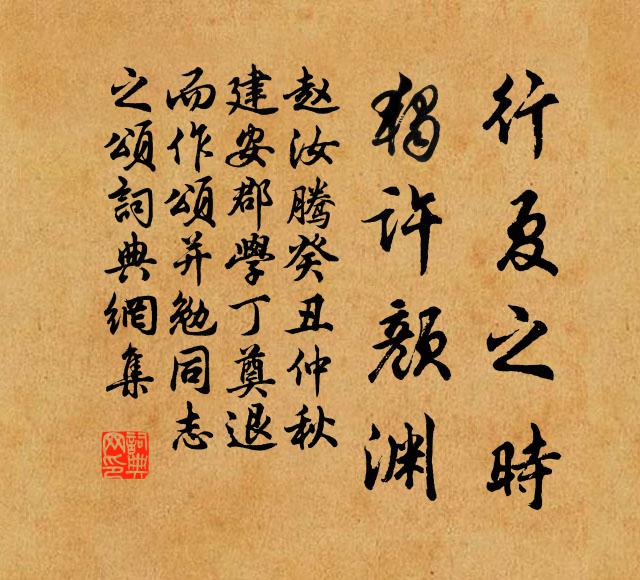 行夏之時
獨許顏渊
赵汝騰癸丑仲秋
建安郡學丁奠退
而作頌并勉同志
之頌詞典網集
詞典
网印